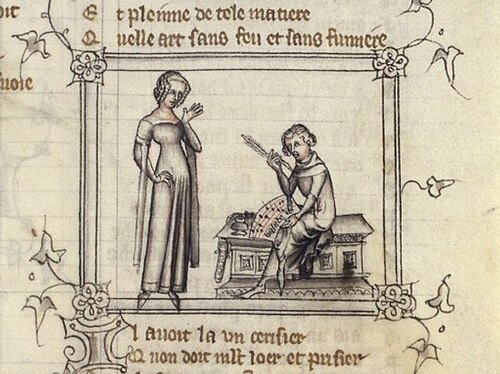 oit
E t pleinne de tele matiere
Q uelle art sans feu et sans fumiere
uoie
l auoit la un cerisier
Q non doit mlt loer et prisier